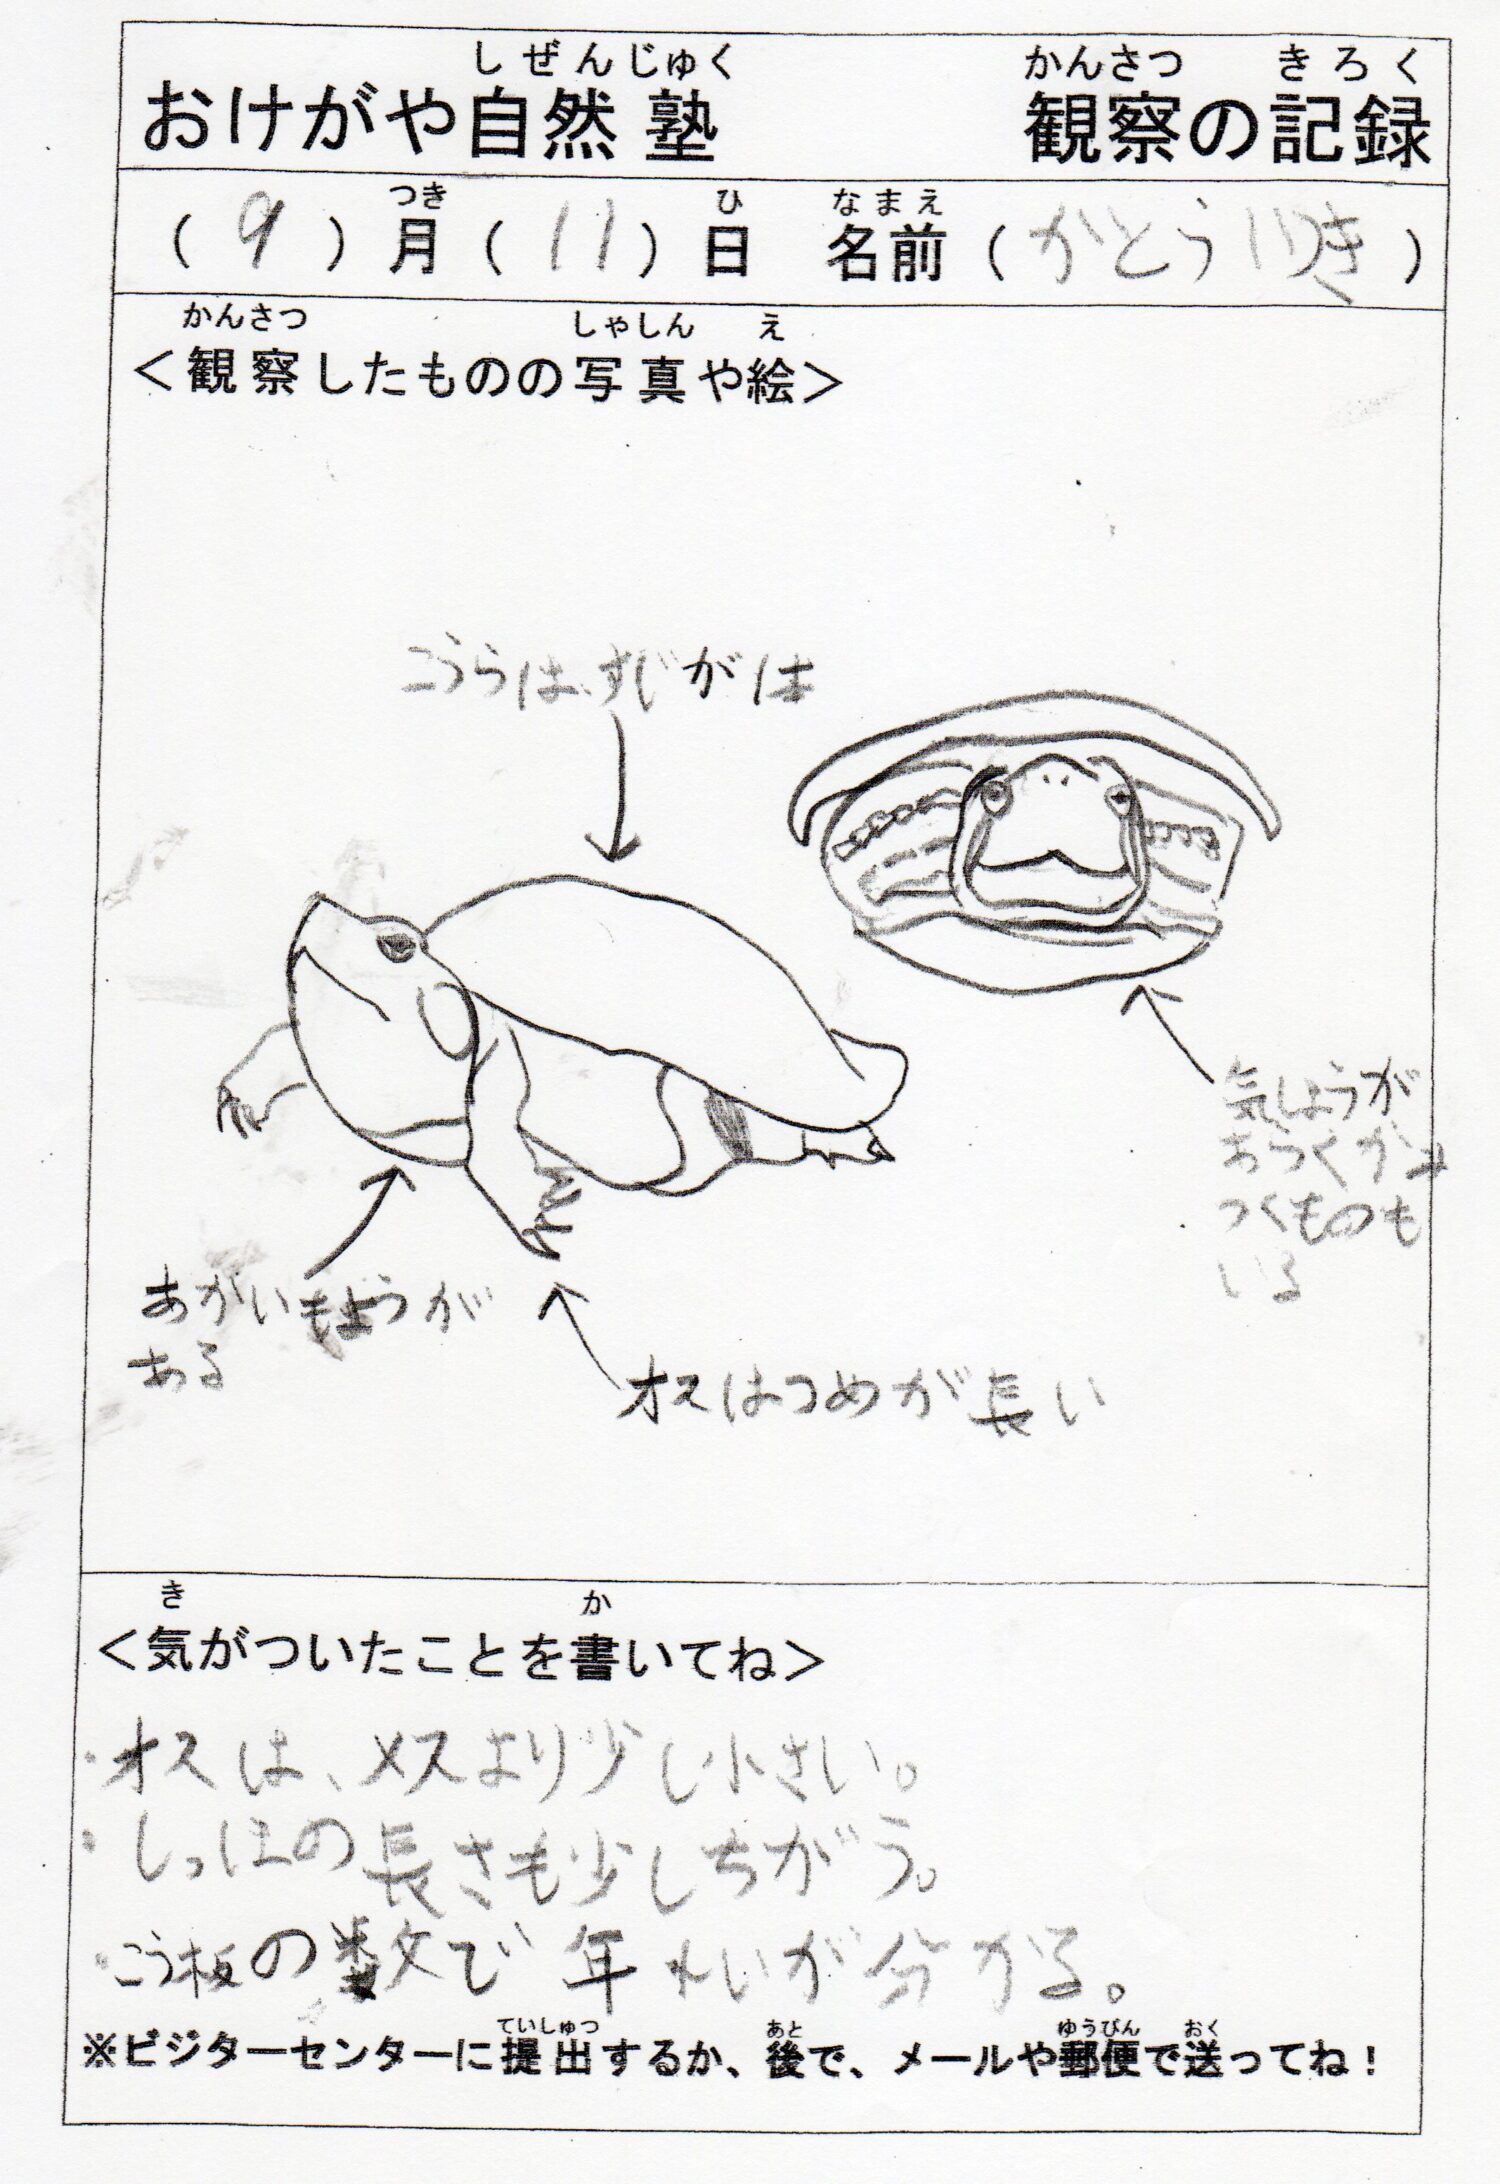 しぜんじゅく かんさつ きろく
おけがや自然塾 観察の記録
つき ひ なまえ
(9)月(11)日 名前(かとういつき)
かんさつ しゃしん え
<観察したものの写真や絵>
こうらは、すじがは
気しょうが
おうくかみ
つくものも
いる
あかいもようが
ある
オスはつめが長い
き か
<気がついたことを書いてね>
・オスは、メスより少し小さい。
・しっぽの長さも少しちがう。
・こう板の数で年れいが分かる。
ていしゅつ あと ゆうびん おく
※ビジターセンターに提出するか、後で、メールや郵便で送ってね！